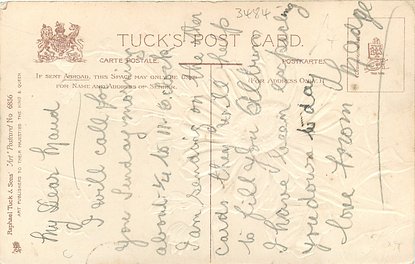 3484
TUCK'S POST CARD.
CARTE POSTALE.
POSTKARTE.
IF SENT ABROAD, THIS SPACE MAY ONLY BE USED
FOR NAME AND ADDRESS OF SENDER.
(FOR ADDRESS ONLY.)
Raphael Tuck & Sons' "Art" Postcard No 6816
ART PUBLISHERS TO THEIR MAJESTIES THE KING & QUEEN
My Dear Maud
I will call for
you Sunday morning
about 1/4 to 11 o'clock
I am sending on the other
cards they will help
to fill you Album
I have been
you down to day
love from Madge